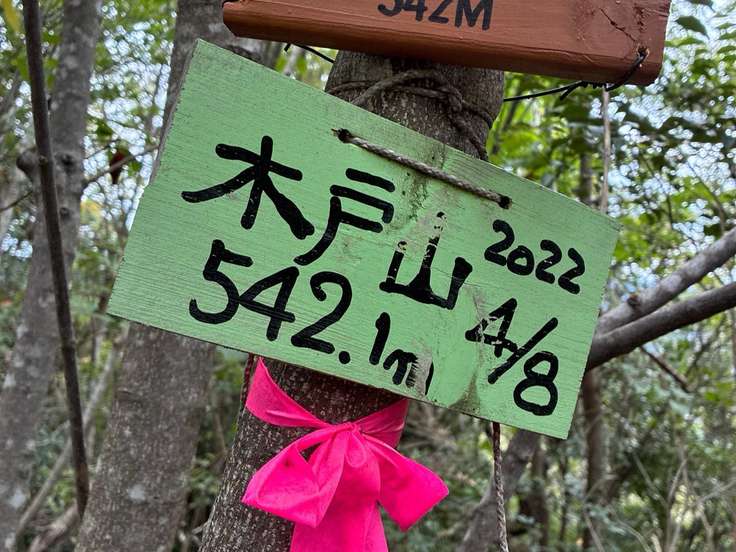 542M
木戸山
2022
542.1m
4/8